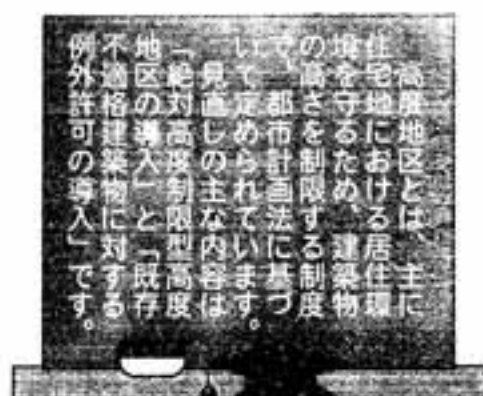 高度地区とは、主に
住宅地における居住環
境を守るため、建築物
の高さを制限する制度
で、都市計画法に基づ
いて定められています。
見直しの主な内容は
「絶対高度制限型高度
地区の導入」と「既存
不適格建築物に対する
例外許可の導入」です。